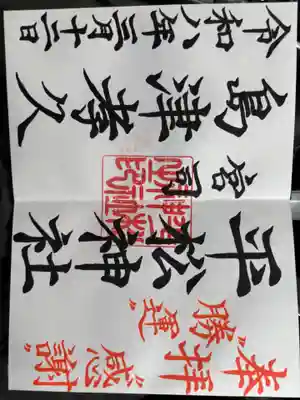 奉拝
“感謝”
“勝運”
平松神社
宮司
島津孝久
令和八年三月十二日